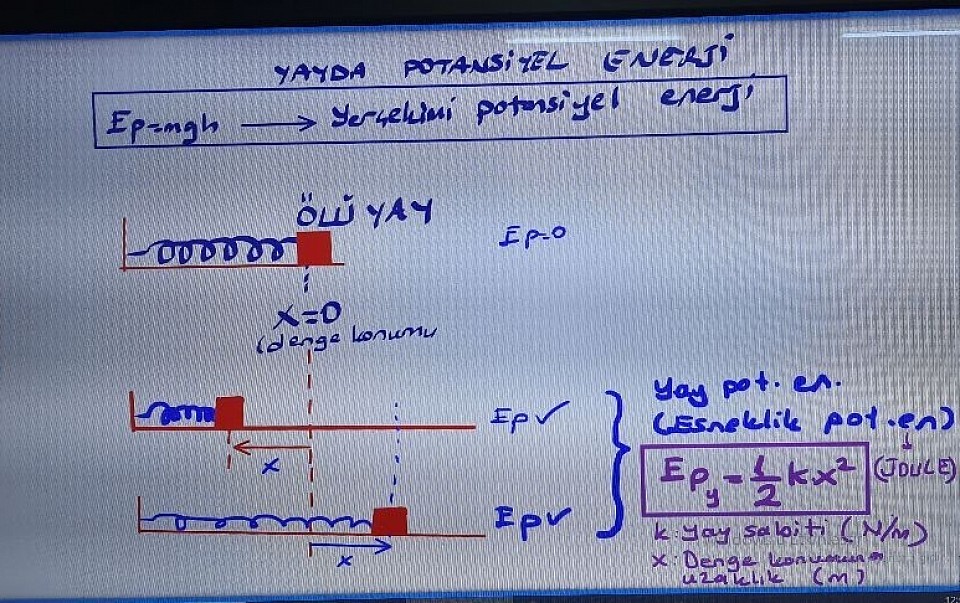 YAYDA POTANSİYEL ENERJİ
Ep=mgh → Yerçekimi potansiyel enerji
ÖLÜ YAY
Ep=0
x=0
(denge konumu
Ep✓
x
Ep✓
x
Yay pot. en.
(Esneklik pot.en)
Epy = 1/2 kx² (JOULE)
k: yay sabiti (N/m)
x: Denge konumuna
uzaklık (m)